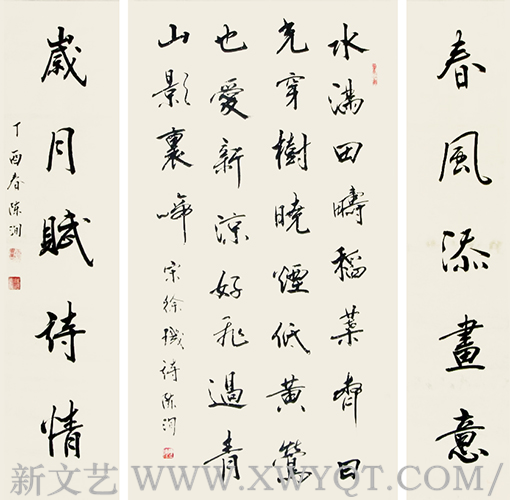 春風添畫意
水滿田疇稻葉齊日
光穿樹曉煙低黃鶯
也愛新涼好飛過青
山影裏啼 宋徐璣詩 陳
歲月賦詩情
丁酉春陳
新文艺 WWW.XWYQT.COM/